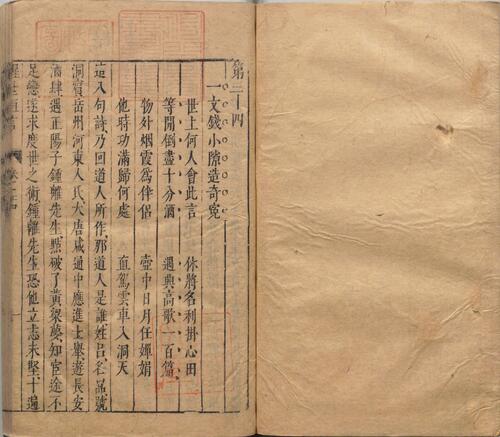 第三十四
一文錢小隙造奇寃
世上何人會此言 休將名利掛心田
等閒倒盡十分酒 遇興高歌一百篇
物外烟霞爲伴侶 壺中日月任嬋娟
他時功滿歸何處 直駕雲車入洞天
這八句詩乃回道人所作那道人是誰姓呂名嵒號
洞賓岳州河東人氏大唐咸通中應進士舉遊長安
酒肆遇正陽子鍾離先生點破了黃粱夢知宦途不
足戀遂求度世之術鍾離先生恐他立志未堅十遍